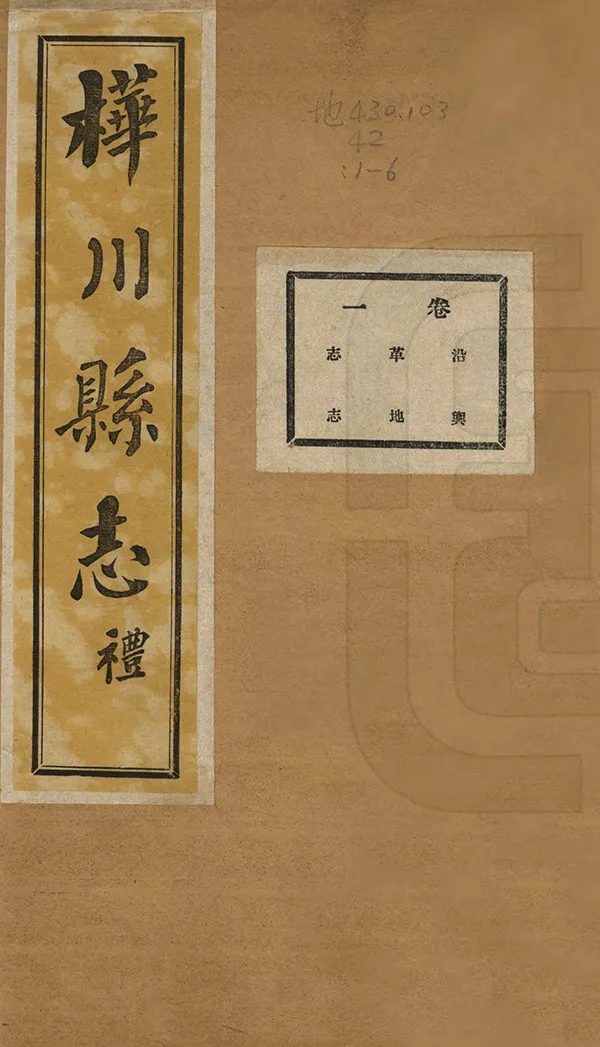 樺川縣志 禮
地430.103
42
:1-6
卷一
沿革志
輿地志